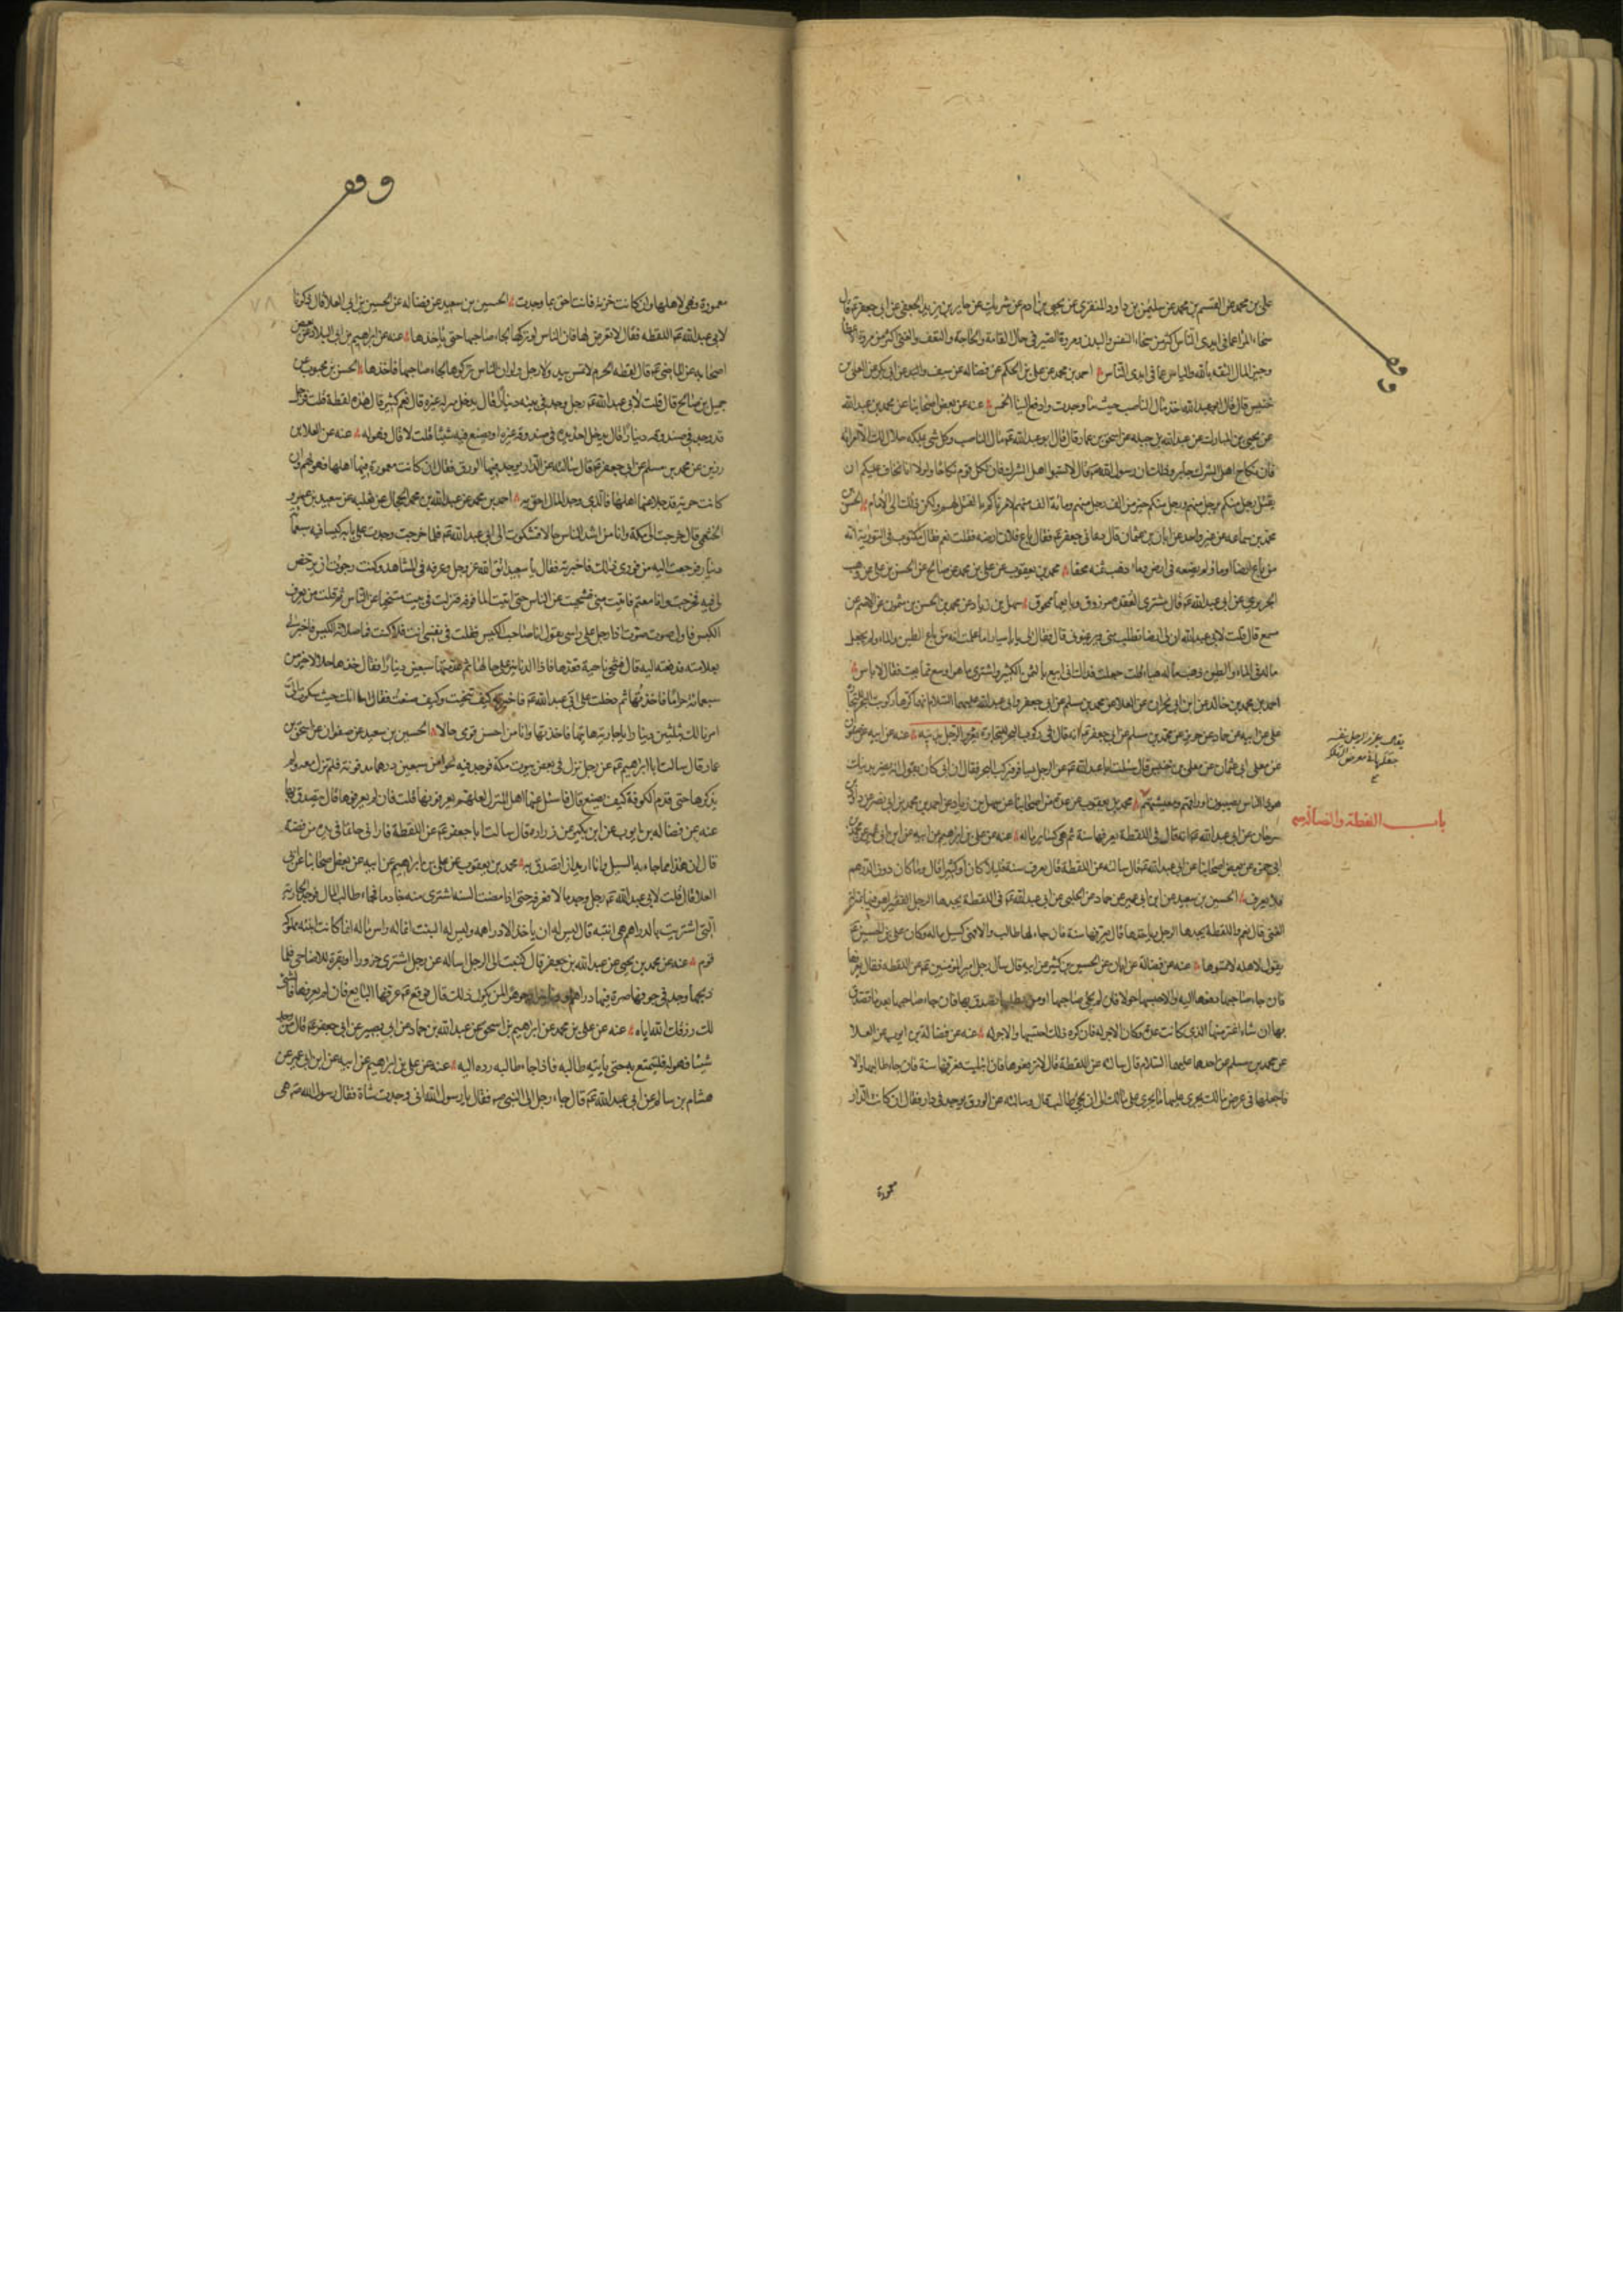 وقف
علی بن محمد عن القسم بن محمد عن سلیمن بن داود المنقری عن یحیی بن ادم عن شریک عن جابر بن یزید الجعفی عن ابی جعفر ع قال
سخاء المرء عما فی ایدی الناس اکثر من سخاء النفس والبذل ومروة الصبر فی حال الفاقة والحاجة والتعفف والغنی اکثر من مروة الاعطاء
وخیر المال الثقة بالله والیاس عما فی ایدی الناس احمد بن محمد عن علی بن الحکم عن فضاله عن سیف وابی بکر عن المعلی بن
خنیس قال قال ابو عبد الله خذ مال الناصب حیث ما وجدت وادفع الینا الخمس عنه عن بعض اصحابنا عن محمد بن عبد الله
عن یحیی بن المبارک عن عبد الله بن جبله عن اسحق بن عمار قال قال ابو عبد الله ع مال الناصب وکل شی یملکه حلال لک الا امراته
فان نکاح اهل الشرک جایز وذلک ان رسول الله ص قال لا تسبوا اهل الشرک فان لکل قوم نکاحا ولولا انا نخاف علیکم ان
یقتل رجل منکم برجل منهم ورجل منکم خیر من الف رجل منهم ومائة الف منهم لامرناکم بالقتل لهم ولکن ذلک الی الامام الحسن بن
محمد بن سماعه عن غیر واحد عن ابان بن عثمان قال دعانی جعفر ع فقال باع فلان ارضه فقلت نعم فقال مکتوب فی التوریة انه
من باع ارضا او ماء ولم یضعه فی ارض وماء ذهب ثمنه محقا محمد بن یعقوب عن علی بن محمد عن صالح عن الحسن بن علی عن وهب
الحریری عن ابی عبد الله ع قال مشتری العقدة مرزوق وبایعها ممحوق سهل بن زیاد عن محمد بن الحسن بن شمون عن الاصم عن
مسمع قال قلت لابی عبد الله ان لی ارضا تطلب منی ویرغبونی فقال لی یا ابا سیار اما علمت انه من باع الطین والماء ولم یجعل
ماله فی الماء والطین ذهب ماله هباء قلت جعلت فداک انی ابیع بالثمن الکثیر واشتری ما هو اوسع مما بعت فقال لا باس
احمد بن محمد بن خالد عن ابن ابی نجران عن العلا عن محمد بن مسلم عن ابی جعفر وابی عبد الله علیهما السلام انهما کرها رکوب البحر للتجارة
علی عن ابیه عن حماد عن حریز عن محمد بن مسلم عن ابی جعفر ع انه قال فی رکوب البحر للتجارة یغرر الرجل بدینه عنه عن ابیه عن صفوان
عن معلی ابی عثمان عن معلی بن خنیس قال سئلت ابا عبد الله ع عن الرجل یسافر فیرکب البحر فقال ان ابی کان یقول انه یضر بدینک
هوذا الناس یصیبون ارزاقهم ومعیشتهم
باب اللقطة والضالة
محمد بن یعقوب عن عدة من اصحابنا عن سهل بن زیاد عن احمد بن محمد بن ابی نصر عن داود بن
سرحان عن ابی عبد الله ع انه قال فی اللقطة یعرفها سنة ثم هی کسایر ماله عنه عن علی بن ابراهیم عن ابیه عن ابن ابی عمیر عن محمد بن
ابی حمزة عن بعض اصحابنا عن ابی عبد الله ع قال سالته عن اللقطة قال تعرف سنة قلیلا کان او کثیرا قال وما کان دون الدرهم
فلا یعرف الحسین بن سعید عن ابن ابی عمیر عن حماد عن الحلبی عن ابی عبد الله ع فی اللقطة یجدها الرجل الفقیر اهو فیها بمنزلة
الغنی قال نعم واللقطة یجدها الرجل ویاخذها قال یعرفها سنة فان جاء لها طالب والا فهی کسبیل ماله وکان علی بن الحسین ع
یقول لاهله لا تمسوها عنه عن فضالة عن ابان عن الحسین بن کثیر عن ابیه قال سال رجل امیر المومنین ع عن اللقطه فقال یعرفها
فان جاء صاحبها دفعها الیه والا حبسها حولا فان لم یجی صاحبها او من یطلبها تصدق بها فان جاء صاحبها بعد ما تصدق
بها ان شاء اغترمها الذی کانت عنده وکان الاجر له فان کره ذلک احتسبها والاجر له عنه عن فضالة بن ایوب عن العلا
عن محمد بن مسلم عن احدهما علیهما السلام قال سالته عن اللقطة قال لا ترفعوها فان ابتلیت فعرفها سنة فان جاء طالبها والا
فاجعلها فی عرض مالک یجری علیها ما یجری علی مالک الی ان یجی طالب قال وسالته عن الورق یوجد فی دار فقال ان کانت الدار
معمورة
وقف
معمورة فهی لاهلها وان کانت خربة فانت احق بما وجدت الحسین بن سعید عن فضاله عن الحسین بن ابی العلا قال ذکرنا
لابی عبد الله ع اللقطه فقال لا تعرض لها فان الناس لو ترکوها لجاء صاحبها حتی یاخذها عنه عن ابراهیم بن ابی البلاد عن بعض
اصحابه عن الماضی ع قال لقطه الحرم لا تمس بید ولا رجل ولو ان الناس ترکوها لجاء صاحبها فاخذها الحسن بن محبوب عن
جمیل بن صالح قال قلت لابی عبد الله ع رجل وجد فی بیته دینارا قال یدخل منزله غیره قال نعم کثیر قال هذه لقطة قلت فرجل
قد وجد فی صندوقه دینارا قال یدخل احد یده فی صندوقه غیره او یضع فیه شیئا قلت لا قال فهو له عنه عن العلا بن
رزین عن محمد بن مسلم عن ابی جعفر ع قال سالته عن الدار یوجد فیها الورق فقال ان کانت معمورة فیها اهلها فهو لهم وان
کانت خربة قد جلا عنها اهلها فالذی وجد المال احق به احمد بن محمد عن عبد الله بن محمد الحجال عن ثعلبه عن سعید بن عمرو
الخثعمی قال خرجت الی مکة وانا من اشد الناس حالا فشکوت الی ابی عبد الله ع فلما خرجت وجدت علی بابه کیسا فیه سبعمائة
دینار فرجعت الیه من فوری ذلک فاخبرته فقال یا سعید اتق الله عز وجل وعرفه فی المشاهد وکنت رجوت ان یرخص
لی فیه فخرجت وانا مغتم فاتیت منی فتنحیت عن الناس حتی اتیت الماقوفة فنزلت فی بیت متنحیا عن الناس ثم قلت من یعرف
الکیس فاول صوت صوت فاذا رجل علی راسی یقول انا صاحب الکیس فقلت فی نفسی انت فلا کنت قلت ما علامة الکیس فاخبرنی
بعلامته فدفعته الیه قال فتنحی ناحیة فعدها فاذا الدنانیر علی حالها ثم عد منها سبعین دینارا فقال خذها حلالا خیر من
سبعمائة حراما فاخذتها ثم دخلت علی ابی عبد الله ع فاخبرته کیف تنحیت وکیف صنعت فقال اما انک حیث شکوت الی
امرنا لک بثلثین دینارا یا جاریة هاتیها فاخذتها وانا من احسن قومی حالا الحسین بن سعید عن صفوان عن اسحق بن
عمار قال سالت ابا ابراهیم ع عن رجل نزل فی بعض بیوت مکة فوجد فیه نحوا من سبعین درهما مدفونة فلم تزل معه ولم
یذکرها حتی قدم الکوفة کیف یصنع قال فاسئل عنها اهل المنزل لعلهم یعرفونها قلت فان لم یعرفوها قال یتصدق بها
عنه عن فضاله بن ایوب عن ابن بکیر عن زراره قال سالت ابا جعفر ع عن اللقطة فارانی خاتما فی یده من فضة
قال ان هذا مما جاء به السیل وانا ارید ان اتصدق به محمد بن یعقوب عن علی بن ابراهیم عن ابیه عن بعض اصحابنا عن ابی
العلا قال قلت لابی عبد الله ع رجل وجد مالا فعرفه حتی اذا مضت السنه اشتری منه خادما فجاء طالب المال فوجد الجاریة
التی اشتریت بالدراهم هی ابنته قال لیس له ان یاخذ الا دراهمه ولیس له البنت انما له راس ماله انما کانت ابنته مملوکه
قوم عنه عن محمد بن یحیی عن عبد الله بن جعفر قال کتبت الی الرجل اساله عن رجل اشتری جزورا او بقرة للاضاحی فلما
ذبحها وجد فی جوفها صرة فیها دراهم او دنانیر او جوهر لمن یکون ذلک قال فوقع ع عرفها البایع فان لم یعرفها فالشی
لک رزقک الله ایاه عنه عن علی بن محمد عن ابراهیم بن اسحق عن عبد الله بن حماد عن ابی بصیر عن ابی جعفر ع قال من وجد
شیئا فهو له فلیتمتع به حتی یاتیه طالبه فاذا جاء طالبه رده الیه عنه عن علی بن ابراهیم عن ابیه عن ابن ابی عمیر عن
هشام بن سالم عن ابی عبد الله ع قال جاء رجل الی النبی ص فقال یا رسول الله انی وجدت شاة فقال رسول الله ص هی